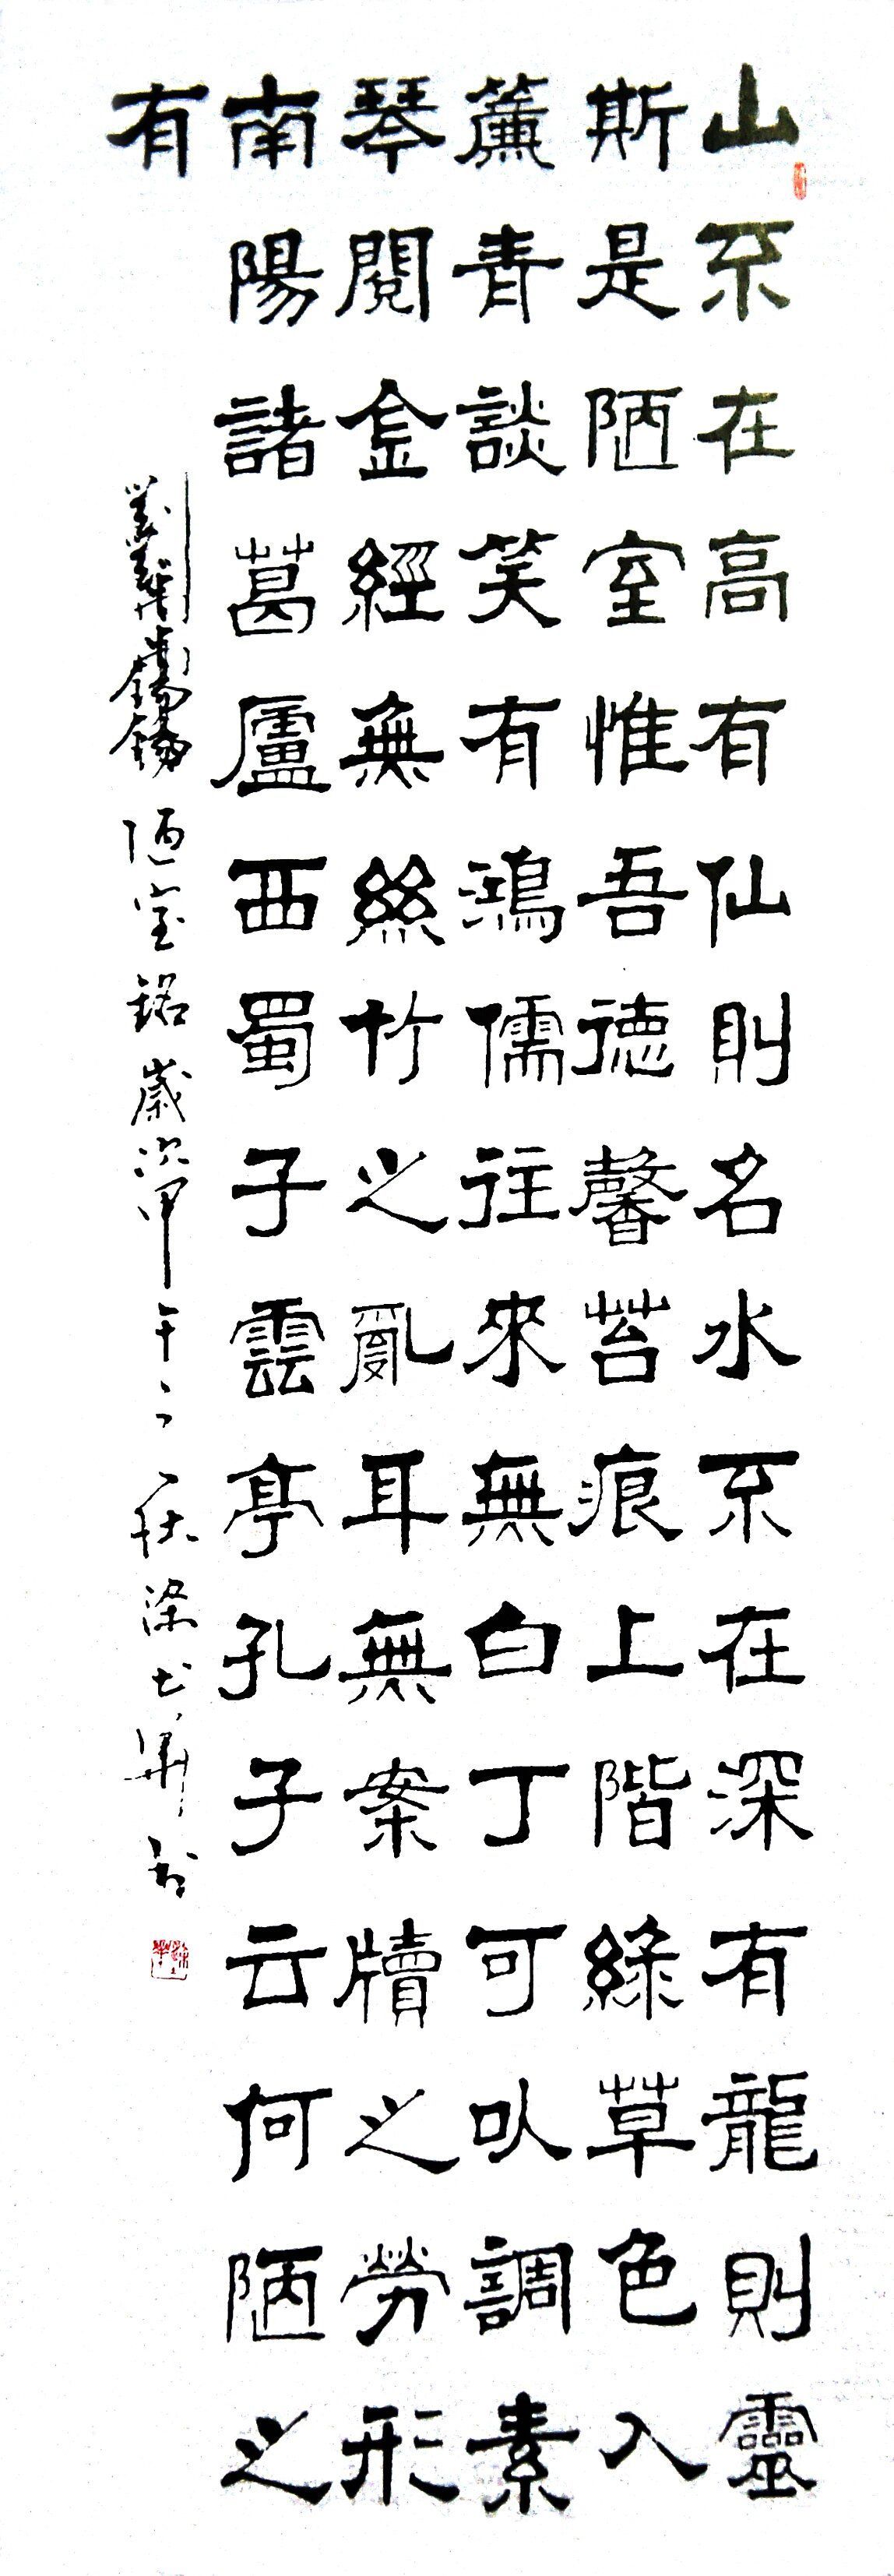 山不在高有仙則名水不在深有龍則靈
斯是陋室惟吾德馨苔痕上階綠草色入
簾青談笑有鴻儒往來無白丁可以調素
琴閱金經無絲竹之亂耳無案牘之勞形
南陽諸葛廬西蜀子雲亭孔子云何陋之
有
劉禹錫陋室銘歲次甲午之秋